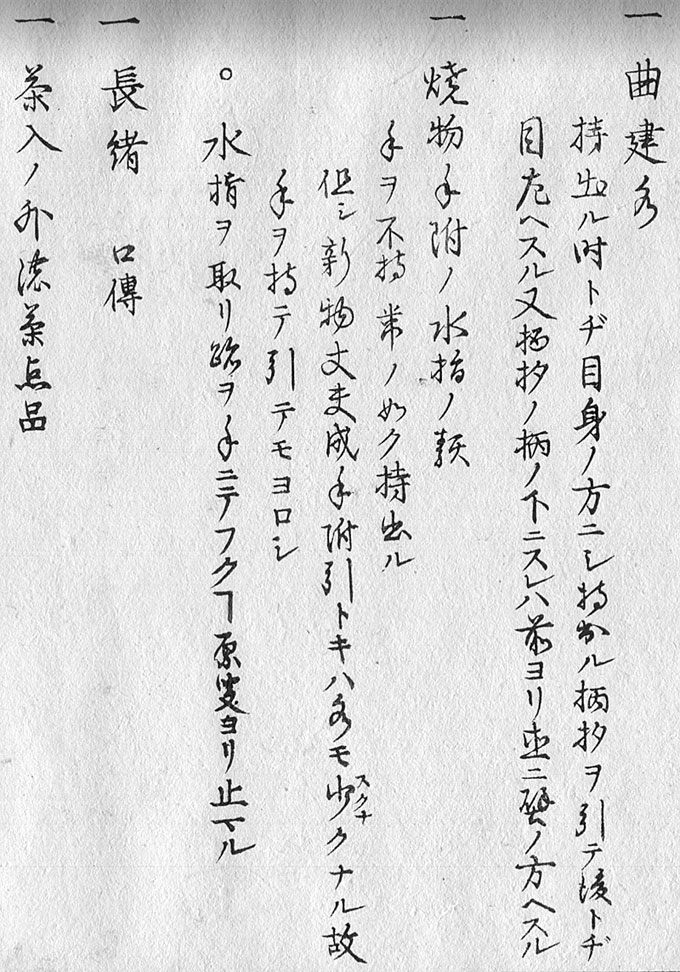 一 曲建水
持出ル时トヂ目身ノ方ニシ持出ル柄杓ヲ引テ後トヂ
目左ヘスル又柄杓ノ柄ノ下ニスレハ前ヨリ直ニ壁ノ方ヘスル
一 焼物手附ノ水指ノ類
手ヲ不持常ノ如ク持出ル
但シ新物丈夫成手附引トキハ水モ少クナル故
スクナ
手ヲ持テ引テモヨロシ
○ 水指ヲ取リ跡ヲ手ニテフクヿ原叟ヨリ止マル
一 長緒 口傳
一 茶入ノ外濃茶点品